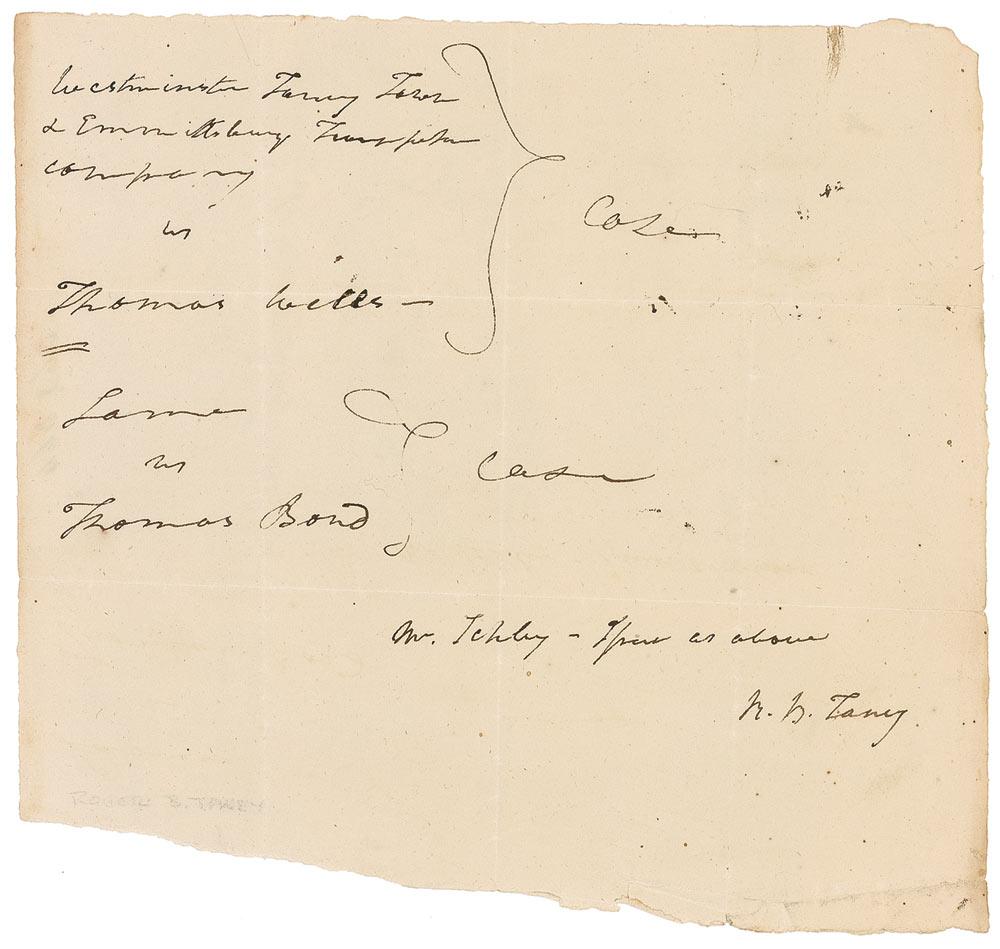 Westminster Taney Town
& Emmittsburg Turnpike
company
vs
Thomas Wells —
Case
Same
vs
Thomas Bond
Case
Mr. Schley – Issue as above
R. B. Taney
ROGER B. TANEY